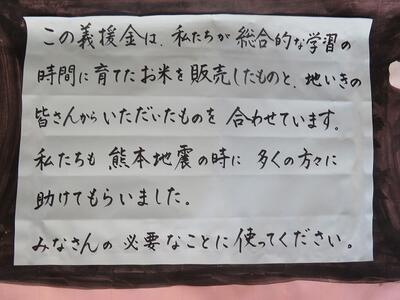 この義援金は、私たちが総合的な学習の
時間に育てたお米を販売したものと、地いきの
皆さんからいただいたものを合わせています。
私たちも熊本地震の時に多くの方々に
助けてもらいました。
みなさんの必要なことに使ってください。